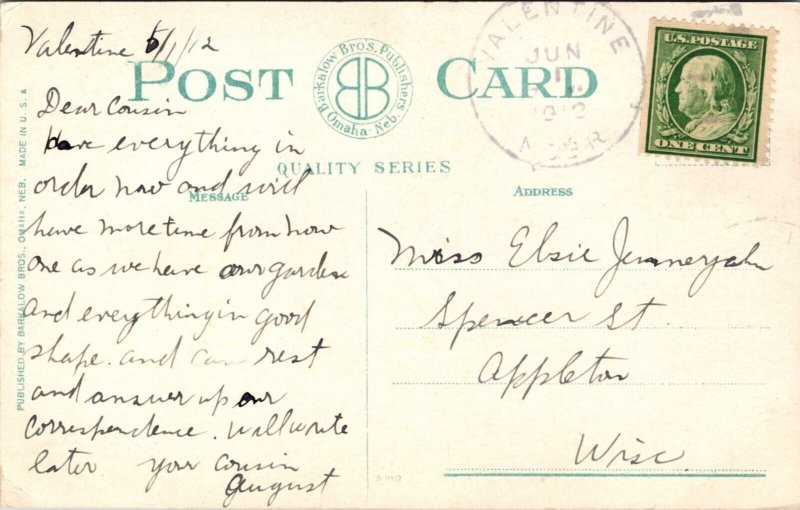 Valentine 6/1/12
POST CARD
Barkalow Bro's. Publishers. Omaha. Neb.
BB
QUALITY SERIES
MESSAGE
ADDRESS
VALENTINE
JUN
1912
U.S. POSTAGE
ONE CENT
Dear Cousin
have everything in
order now and will
have more time from now
one as we have our garden
and everything in good
shape. and can rest
and answer up our
correspondence. will write
later your cousin
August
Miss Elsie
Spencer St.
Appleton
Wisc
PUBLISHED BY BARKALOW BROS., OMAHA, NEB. MADE IN U.S.A